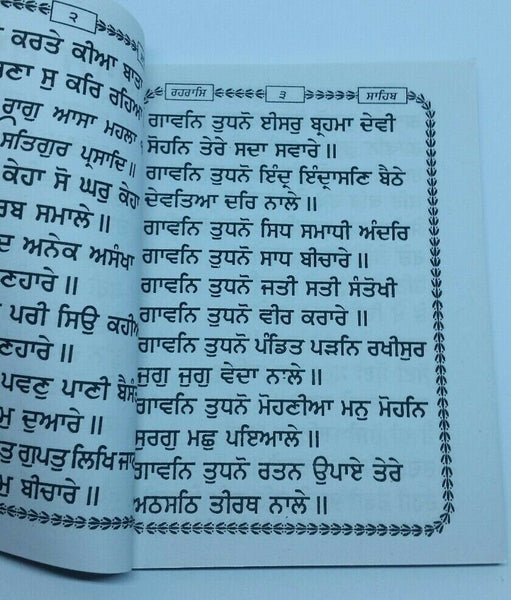 ੨
ਕਰਤੇ ਕੀਆ ਬਾਤਾ
ਸੁ ਕਰਿ ਰਹਿਆ
ਰਾਗੁ ਆਸਾ ਮਹਲਾ
ਸਤਿਗੁਰ ਪ੍ਰਸਾਦਿ॥
ਕੇਹਾ ਸੋ ਘਰੁ ਕੇਹਾ
ਸਮਾਲੇ॥
ਅਨੇਕ ਅਸੰਖਾ
ਪਰੀ ਸਿਉ ਕਹੀਅ
ਪਵਣੁ ਪਾਣੀ
ਦੁਆਰੇ॥
ਗੁਪਤੁ ਲਿਖਿ
ਬੀਚਾਰੇ॥
ਰਹਰਾਸਿ ੩ ਸਾਹਿਬ
ਗਾਵਨਿ ਤੁਧਨੋ ਈਸਰੁ ਬ੍ਰਹਮਾ ਦੇਵੀ
ਸੋਹਨਿ ਤੇਰੇ ਸਦਾ ਸਵਾਰੇ॥
ਗਾਵਨਿ ਤੁਧਨੋ ਇੰਦ੍ਰ ਇੰਦ੍ਰਾਸਣਿ ਬੈਠੇ
ਦੇਵਤਿਆ ਦਰਿ ਨਾਲੇ॥
ਗਾਵਨਿ ਤੁਧਨੋ ਸਿਧ ਸਮਾਧੀ ਅੰਦਰਿ
ਗਾਵਨਿ ਤੁਧਨੋ ਸਾਧ ਬੀਚਾਰੇ॥
ਗਾਵਨਿ ਤੁਧਨੋ ਜਤੀ ਸਤੀ ਸੰਤੋਖੀ
ਗਾਵਨਿ ਤੁਧਨੋ ਵੀਰ ਕਰਾਰੇ॥
ਗਾਵਨਿ ਤੁਧਨੋ ਪੰਡਿਤ ਪੜਨਿ ਰਖੀਸੁਰ
ਜੁਗੁ ਜੁਗੁ ਵੇਦਾ ਨਾਲੇ॥
ਗਾਵਨਿ ਤੁਧਨੋ ਮੋਹਣੀਆ ਮਨੁ ਮੋਹਨਿ
ਸੁਰਗੁ ਮਛੁ ਪਇਆਲੇ॥
ਗਾਵਨਿ ਤੁਧਨੋ ਰਤਨ ਉਪਾਏ ਤੇਰੇ
ਅਠਸਠਿ ਤੀਰਥ ਨਾਲੇ॥